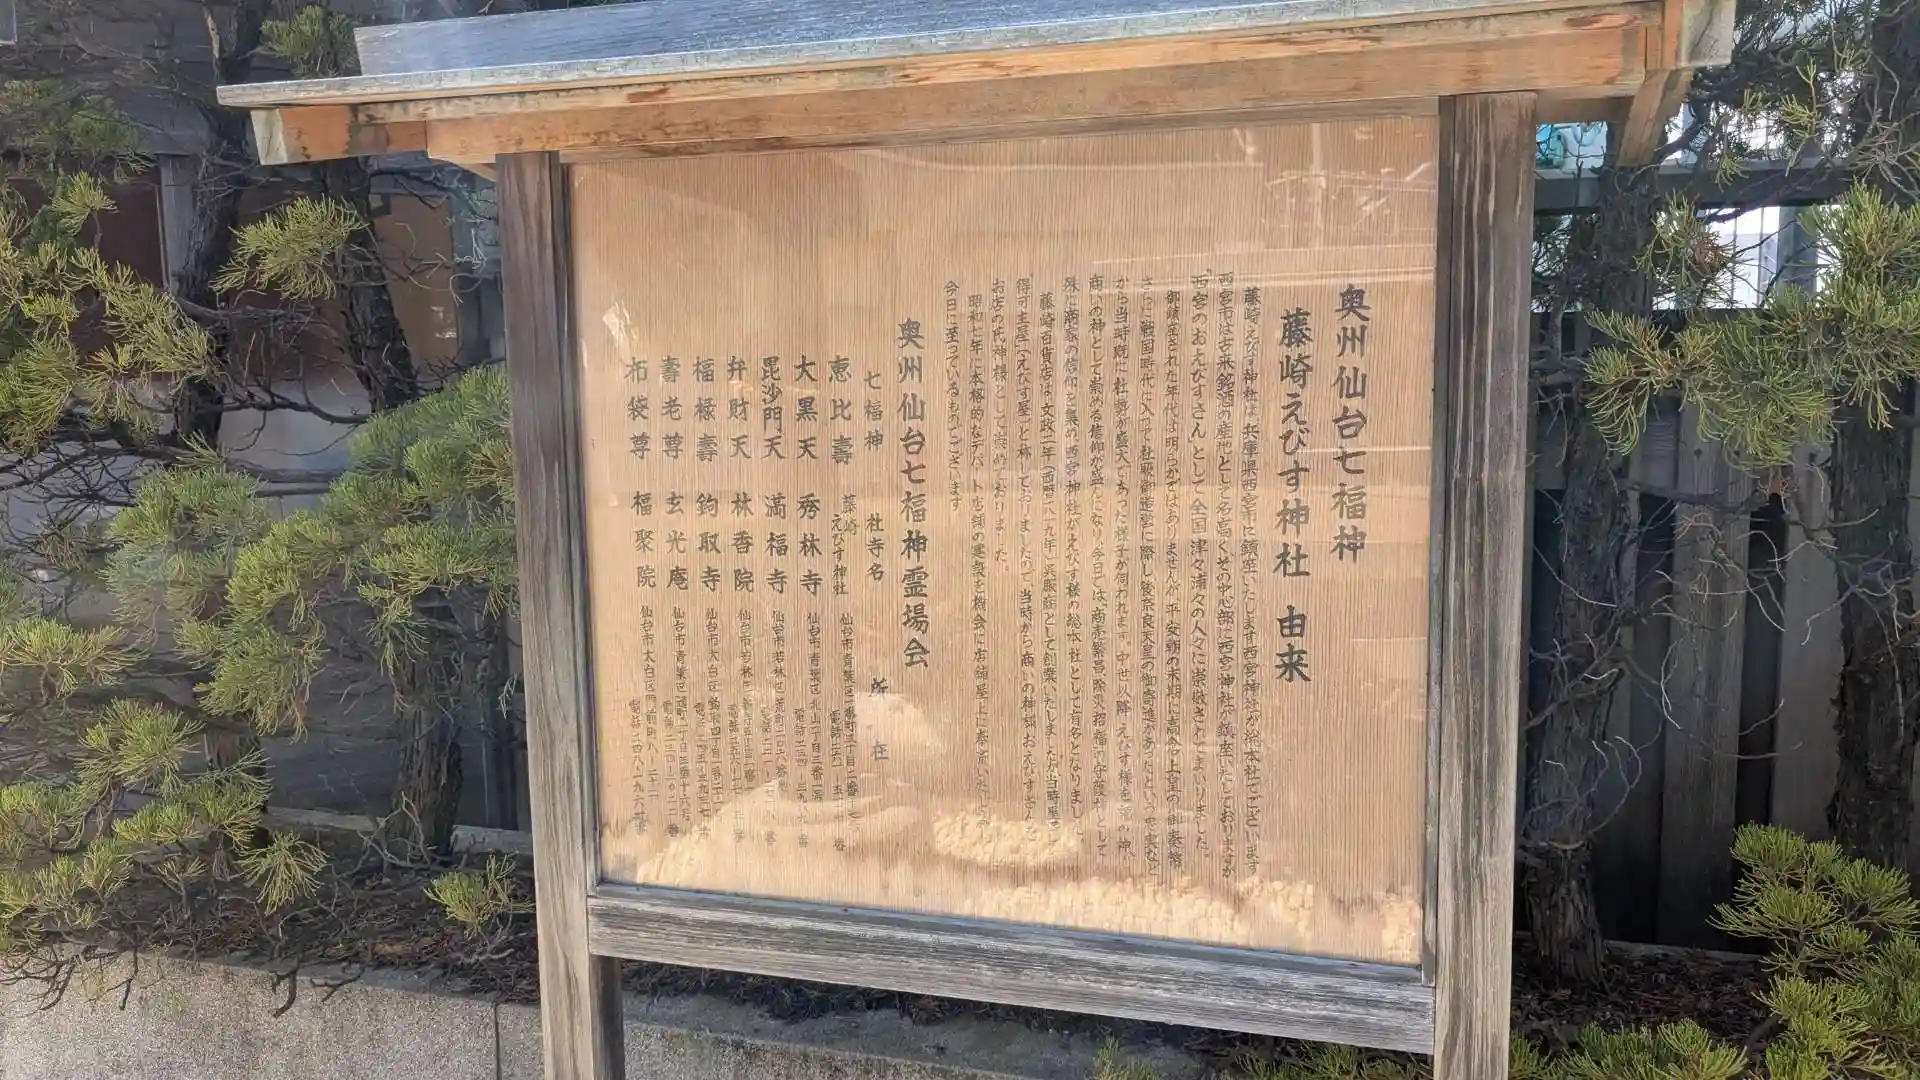 奥州仙台七福神
藤崎えびす神社 由来
藤崎えびす神社は、兵庫県西宮市に鎮座いたします西宮神社が総本社でございます
西宮市は古来銘酒の産地として名高くその中心部に西宮神社が鎮座いたしておりますが
"西宮のおえびすさん"として全国津々浦々の人々に崇敬されてまいりました。
御鎮座された年代は明らかではありませんが、平安朝の末期に高倉上皇の御奉幣
さらに戦国時代に入って社殿御造営に際し、後奈良天皇の御寄進があったという史実など
から当時既に社勢が盛大であった様子が伺われます。中世以降、えびす様を福の神、
商いの神として崇める信仰が盛んになり、今日では、商売繁昌、除災招福の守護神として
殊に商家の信仰を集め、西宮神社がえびす様の総本社として有名となりました。
藤崎百貨店は、文政二年(西暦一八一九年)呉服商として創業いたしましたが当時屋号を
"得可主屋"(えびす屋)と称しておりましたので、当時から商いの神様"おえびすさん"を
お店の氏神様として崇めております。
昭和七年に本格的なデパート店舗の建築を機会に店舗屋上に奉斎いたし
今日に至っているものでございます
奥州仙台七福神霊場会
七福神 社寺名 所在
恵比壽 藤崎えびす神社 仙台市青葉区一番町三丁目二番
大黒天 秀林寺 仙台市青葉区北山一丁目三番一号
毘沙門天 満福寺 仙台市若林区荒町二〇六番
弁財天 林香院 仙台市若林区新寺
福禄壽 鉤取寺 仙台市太白区鉤取四丁目
壽老尊 玄光庵 仙台市青葉区通町一丁目
布袋尊 福聚院 仙台市太白区門前町八ー三十一